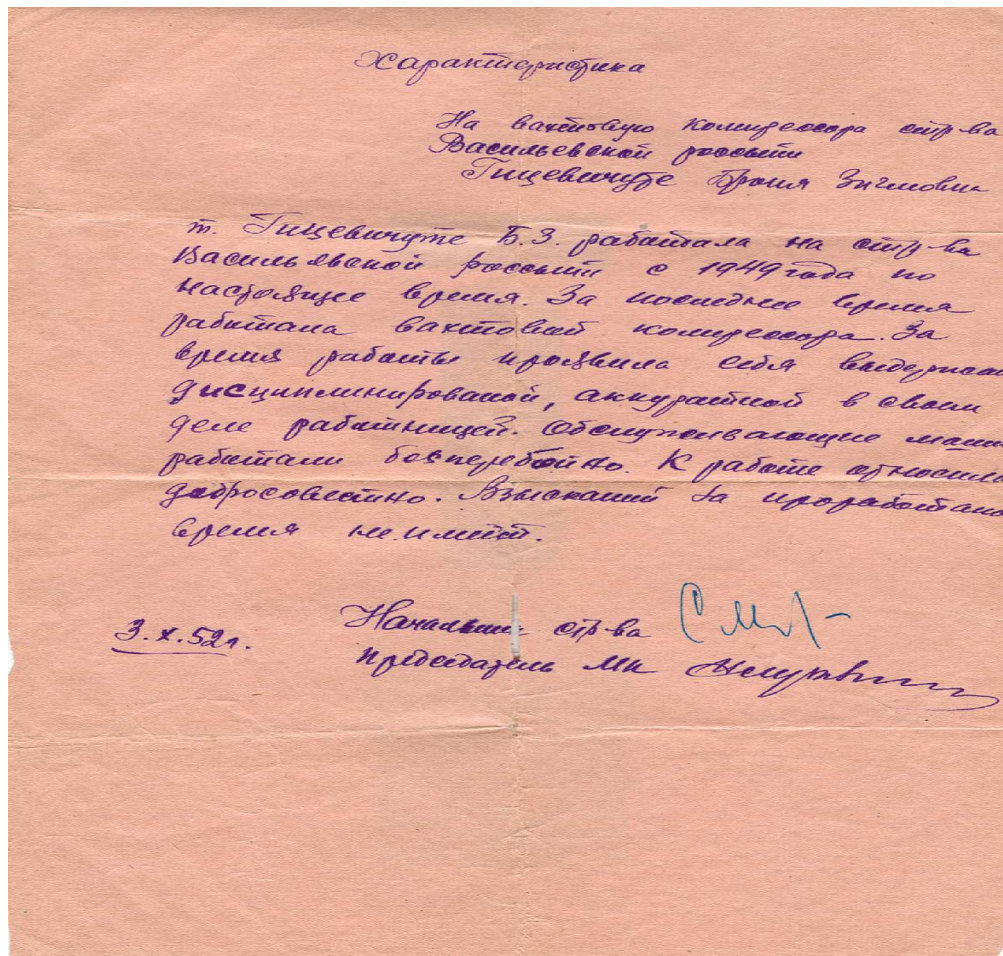 Характеристика
На вахтовую компрессора стр-ва
Васильевской россыпи
Гицевичуте Броня Зигмовна
т. Гицевичуте Б.З. работала на стр-ва
Васильевской россыпи с 1949 года по
настоящее время. За последнее время
работала вахтовой компрессора. За
время работы проявила себя выдержан
дисциплинированой, аккуратной в своем
деле работницей. Обслуживающие маши
работали бесперебойно. К работе относила
добросовестно. Взысканий за проработано
время не имеет.
3.X.52г.
Начальник стр-ва
Председатель МК